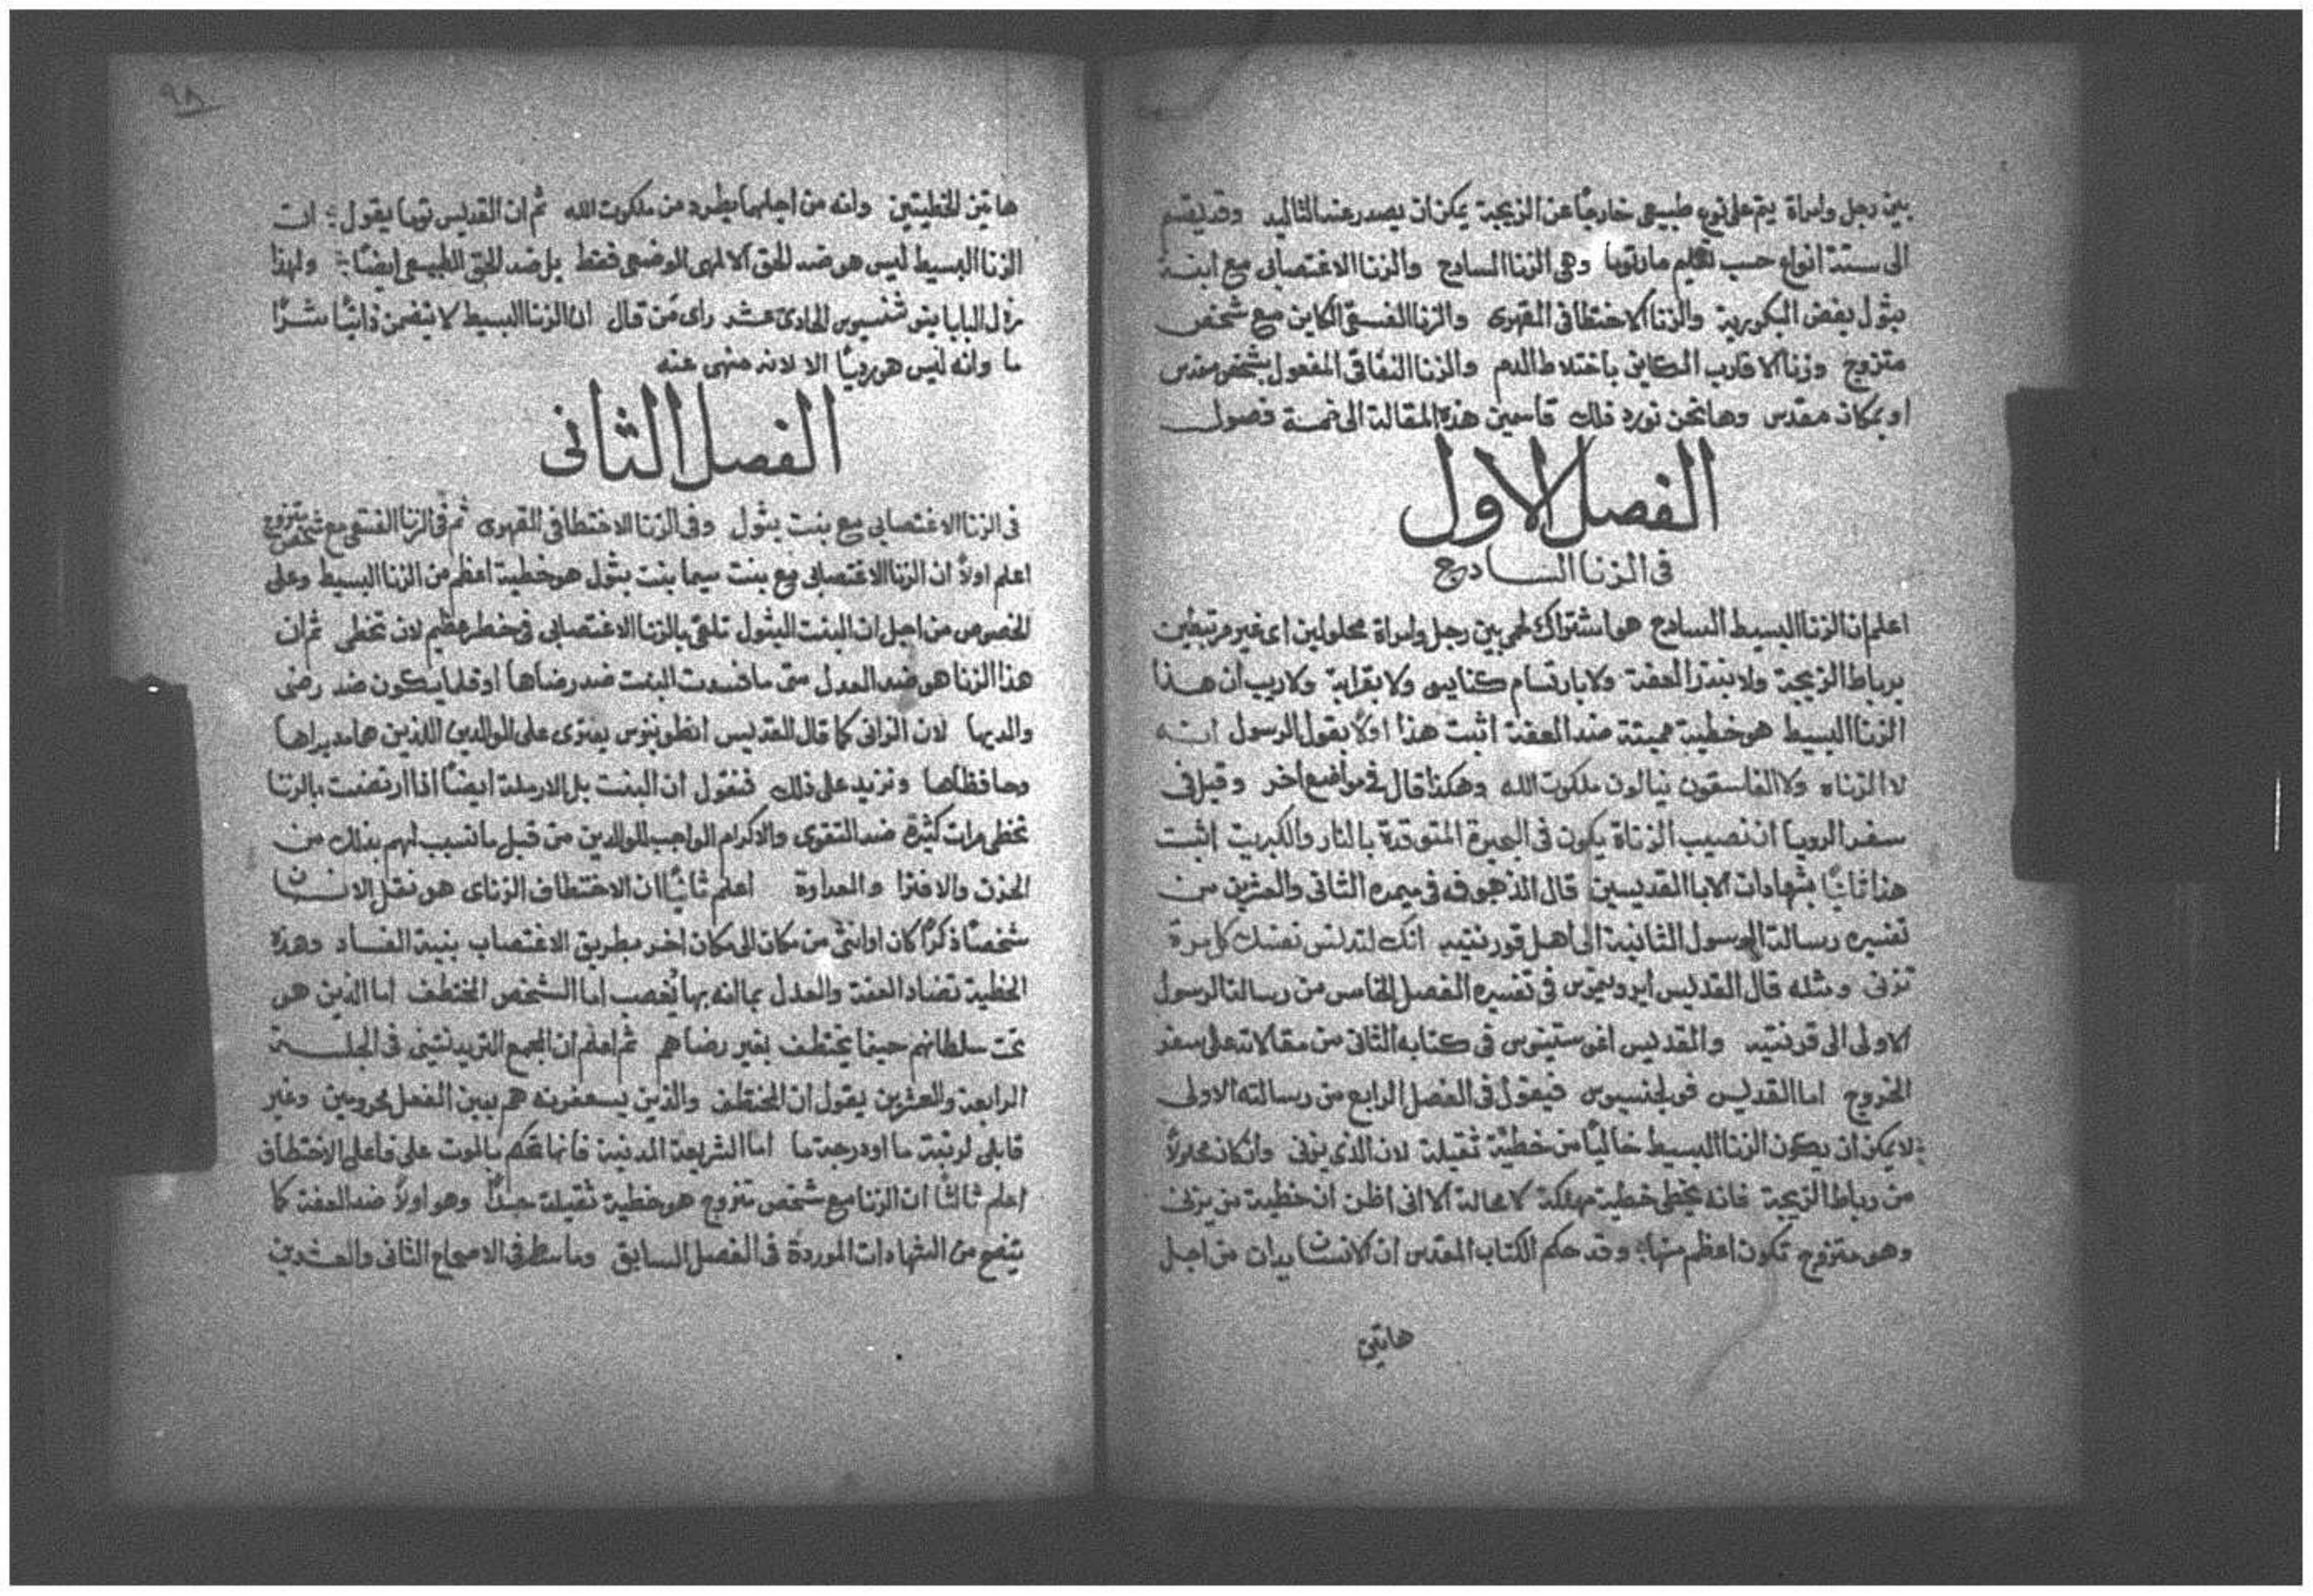 بين رجل وامراة يتم على نوع طبيعي خارجًا عن الزيجة يمكن ان يصدر عنه التاليد وقد يقسم
الى ستة انواع حسب تعليم مارتوما وهى الزنا السادج والزنا الاغتصابى مع ابنة
بتول بفض البكورية والزنا الاختطافى القهرى والزنا الفسقى الكاين مع شخص
متزوج وزنا الاقارب الكاين باختلاط الدم والزنا النفاقى المفعول بشخص مقدس
او بمكان مقدس وها نحن نورد ذلك قاسمين هذه المقالة الى خمسة فصول
الفصل الاول
فى الزنا السادج
اعلم ان الزنا البسيط السادج هو اشتراك لحمى بين رجل وامراة محلولين اى غير مرتبطين
برباط الزيجة ولا بنذر العفة ولا بارتسام كنايسى ولا بقرابة ولا ريب ان هذا
الزنا البسيط هو خطية مميتة ضد العفة اثبت هذا اولًا بقول الرسول انه
لا الزناه ولا الفاسقون ينالون ملكوت الله وهكذا قال فى مواضع اخر وقيل فى
سفر الرويا ان نصيب الزناة يكون فى البحيرة المتوقدة بالنار والكبريت اثبت
هذا ثانيًا بشهادات الابا القديسين قال الذهبى فه فى ميمره الثانى والعشرين من
تفسيره رسالة الرسول الثانية الى اهل قورنتيه انك لتدنس نفسك كل مرة
تزنى ومثله قال القديس ايرونيموس فى تفسيره الفصل الخامس من رسالة الرسول
الاولى الى قرنتيه والقديس اغوستينوس فى كتابه الثانى من مقالاته على سفر
الخروج اما القديس فولجنسيوس فيقول فى الفصل الرابع من رسالته الاولى
لا يمكن ان يكون الزنا البسيط خاليًا من خطية ثقيلة لان الذى يزنى وان كان محلولًا
من رباط الزيجة فانه يخطى خطية مهلكة لا محالة الا انى اظن ان خطية من يزنى
وهو متزوج تكون اعظم منها وقد حكم الكتاب المقدس ان الانسان يدان من اجل
هاتين
٩٨
هاتين الخطيتين وانه من اجلهما يطرد من ملكوت الله ثم ان القديس توما يقول ان
الزنا البسيط ليس هو ضد الحق الالهى الوضعى فقط بل ضد الحق الطبيعى ايضًا ولهذا
رذل البابا الحادى عشر راى من قال ان الزنا البسيط لا يتضمن ذاتيًا شرًا
ما وانه ليس هو رديًا الا لانه منهى عنه
الفصل الثانى
فى الزنا الاغتصابى مع بنت بتول وفى الزنا الاختطافى القهرى ثم فى الزنا الفسقى مع شخص متزوج
اعلم اولًا ان الزنا الاغتصابى مع بنت سيما بنت بتول هو خطية اعظم من الزنا البسيط وعلى
الخصوص من اجل ان البنت البتول تلقى بالزنا الاغتصابى فى خطر عظيم لان تخطى ثم ان
هذا الزنا هو ضد العدل متى ما فسدت البنت ضد رضاها او قلما يكون ضد رضى
والديها لان الزانى كما قال القديس انطونينوس يفترى على الوالدين اللذين هما مدبراها
وحافظاها ونزيد على ذلك فنقول ان البنت بل الارملة ايضًا اذا ارتضت بالزنا
تخطى مرات كثيرة ضد التقوى والاكرام الواجب للوالدين من قبل ما تسبب لهم بذلك من
الحزن والافترا والعداوة اعلم ثانيًا ان الاختطاف الزناى هو نقل الانسان
شخصًا ذكرًا كان او انثى من مكان الى مكان اخر بطريق الاغتصاب بنية الفساد وهذه
الخطية تضاد العفة والعدل بما انه بها يُغصب اما الشخص المختطف اما الذين هو
تحت سلطانهم حينما يختطف بغير رضاهم ثم اعلم ان المجمع التريدنتينى فى الجلسة
الرابعة والعشرين يقول ان المختطف والذين يسعفونه هم بعين الفعل محرومين وغير
قابلى لرتبة ما او درجة ما اما الشريعة المدنية فانها تحكم بالموت على فاعلى الاختطاف
اعلم ثالثًا ان الزنا مع شخص متزوج هو خطية ثقيلة جدًا وهو اولًا ضد العفة كما
يتضح من الشهادات الموردة فى الفصل السابق وما سطر فى الاصحاح الثانى والعشرين